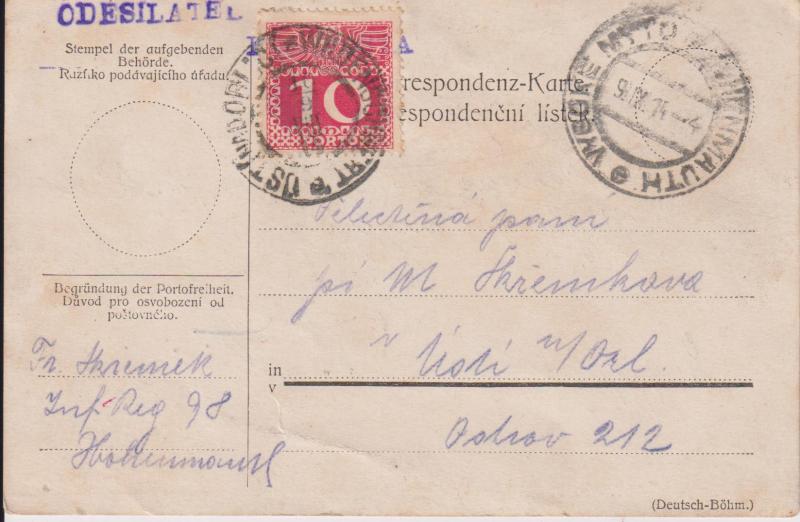 ODESÍLATEL
Stempel der aufgebenden
Behörde.
Razítko podávajícího úřadu.
10
PORTO
respondenz-Karte.
espondenční lístek.
VYSOKÉ MÝTO HOHENMAUTH
9.IX.14-4
Begründung der Portofreiheit.
Důvod pro osvobození od
poštovného.
Fr. Skřemek
Inf. Reg 98
Hohenmauth
pani
pí M Skřemkova
v Ústí n/Orl.
in
v
Ostrov 212
(Deutsch-Böhm.)